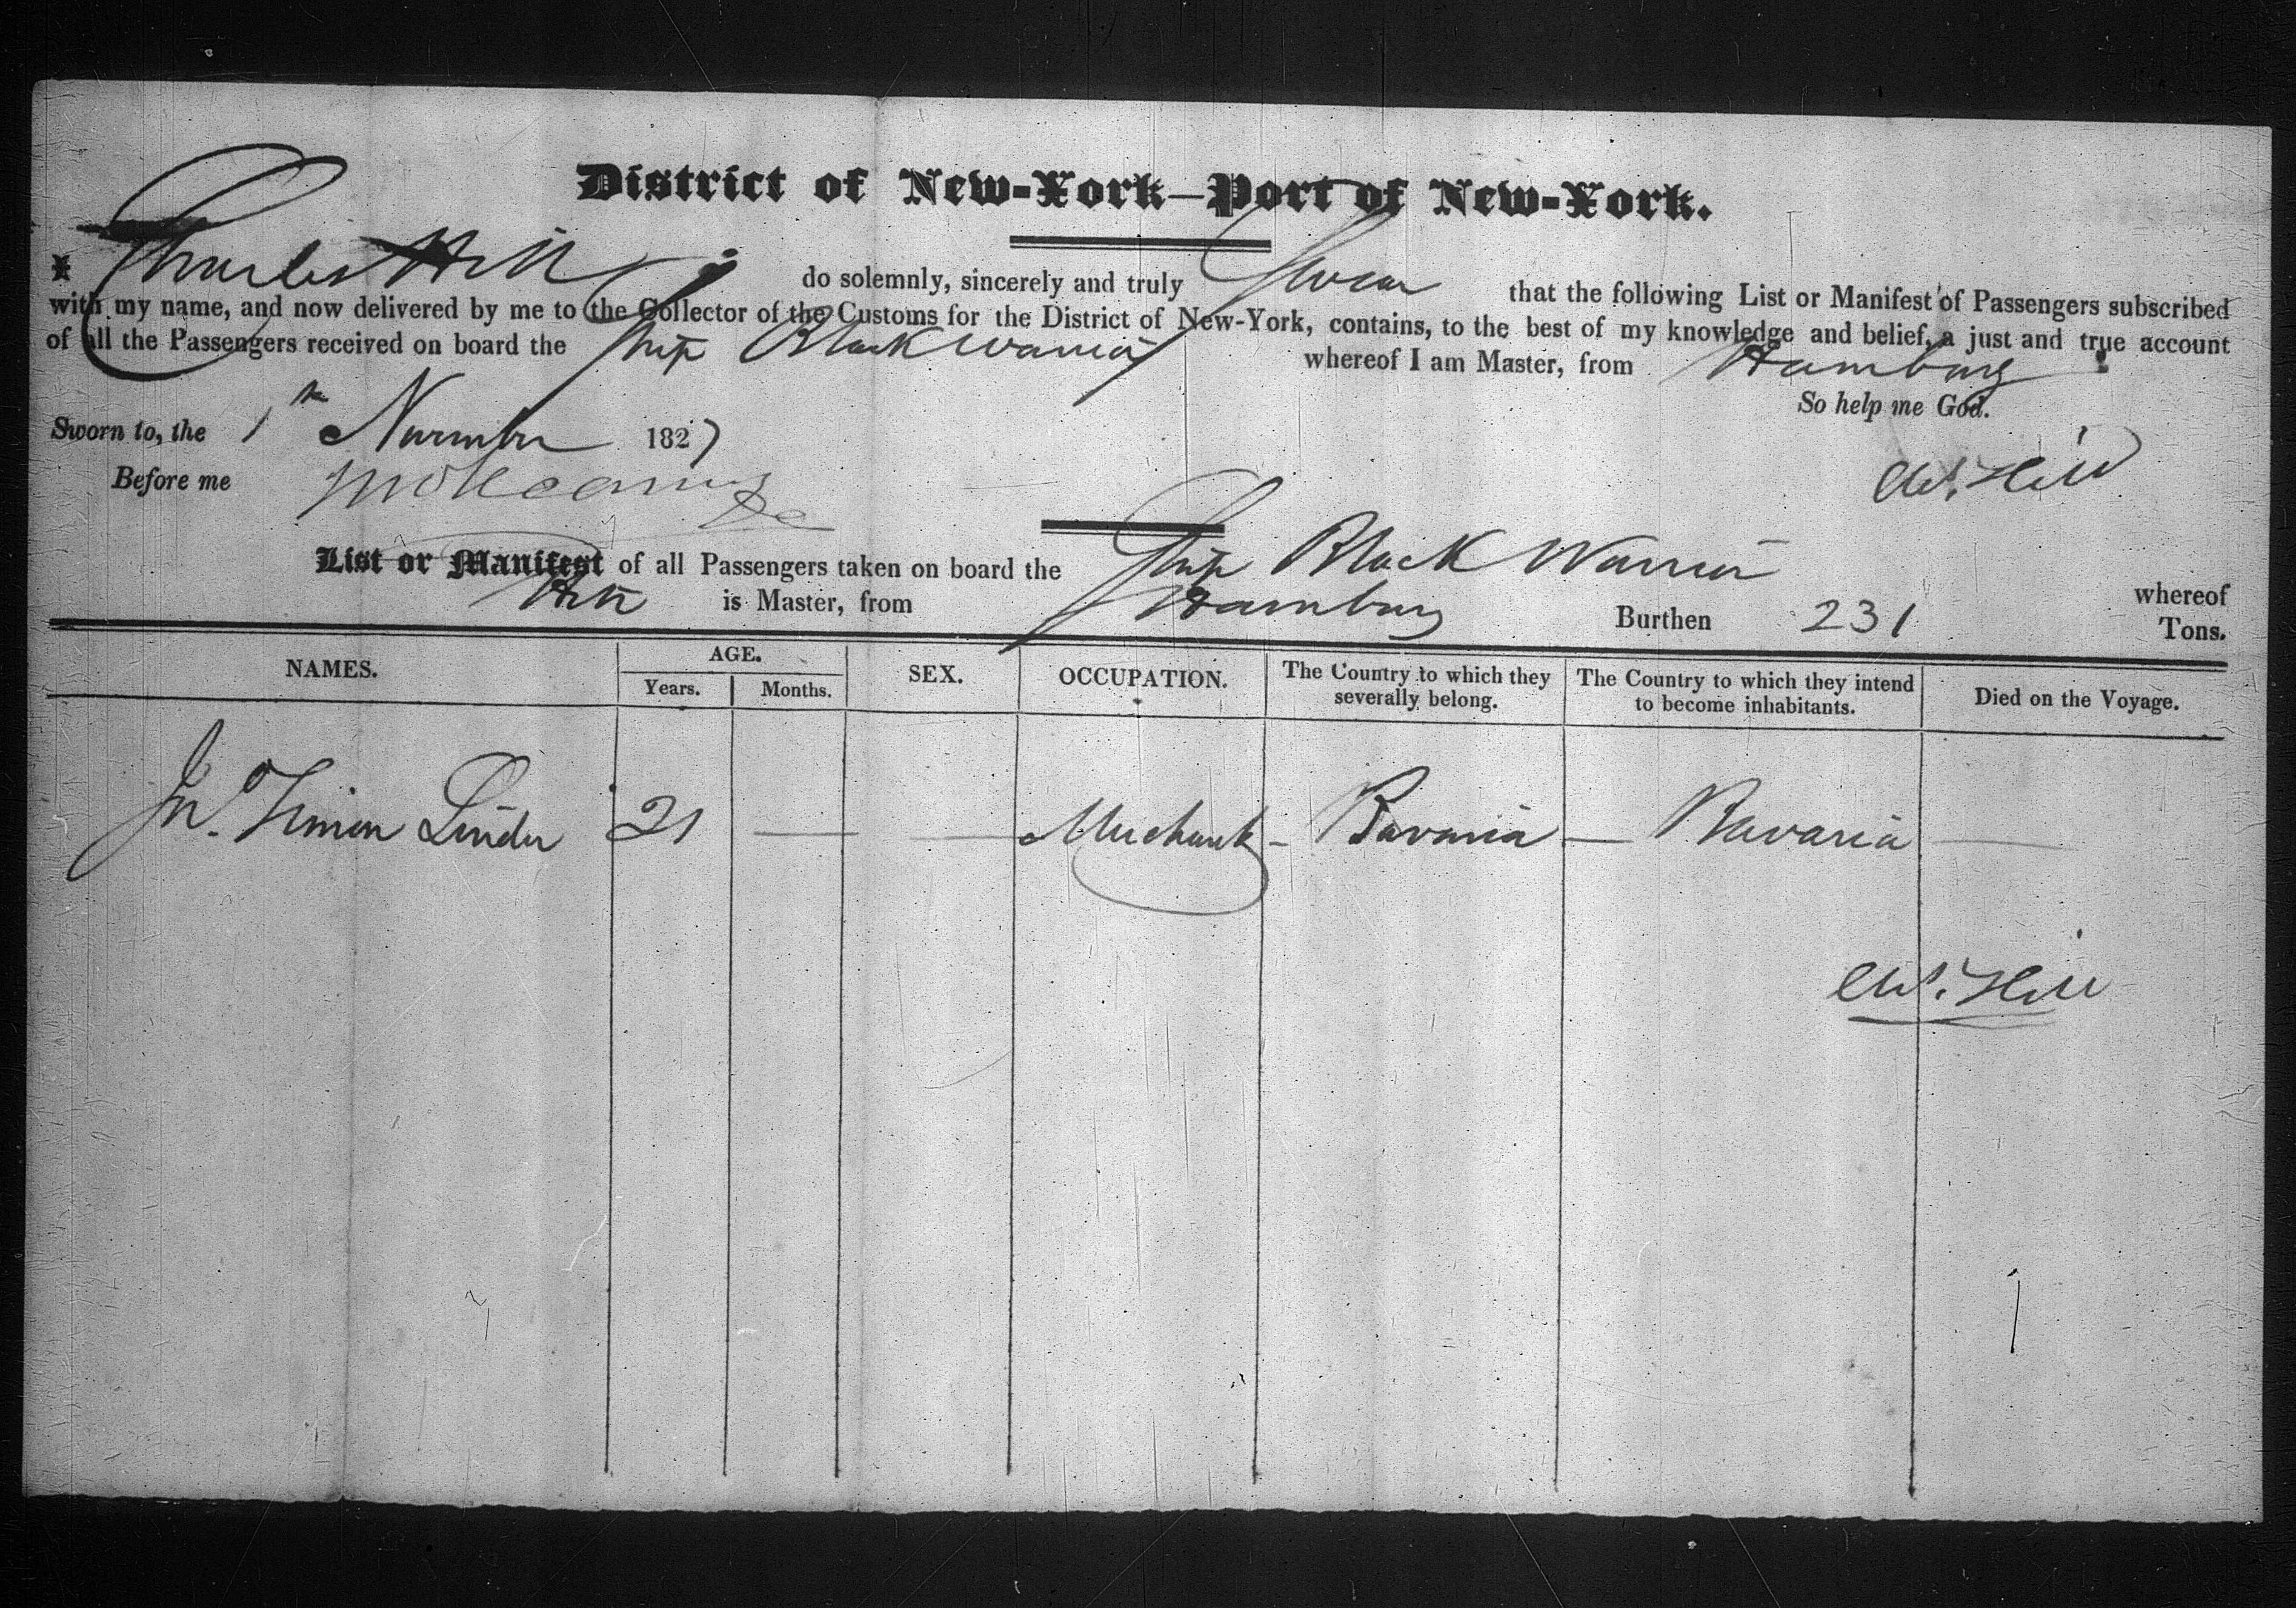 District of New-York—Port of New-York.
I Charles Hill do solemnly, sincerely and truly Swear that the following List or Manifest of Passengers subscribed
with my name, and now delivered by me to the Collector of the Customs for the District of New-York, contains, to the best of my knowledge and belief, a just and true account
of all the Passengers received on board the Ship Black Warrior whereof I am Master, from Hamburg
So help me God.
Sworn to, the 1st November 1827
Before me
Chs. Hill
List or Manifest of all Passengers taken on board the Ship Black Warrior whereof
Hill is Master, from Hamburg Burthen 231 Tons.
NAMES. AGE. Years. Months. SEX. OCCUPATION. The Country to which they severally belong. The Country to which they intend to become inhabitants. Died on the Voyage.
Jn. Simon Linder 21 — — Merchant - Bavaria — Bavaria —
Chs. Hill